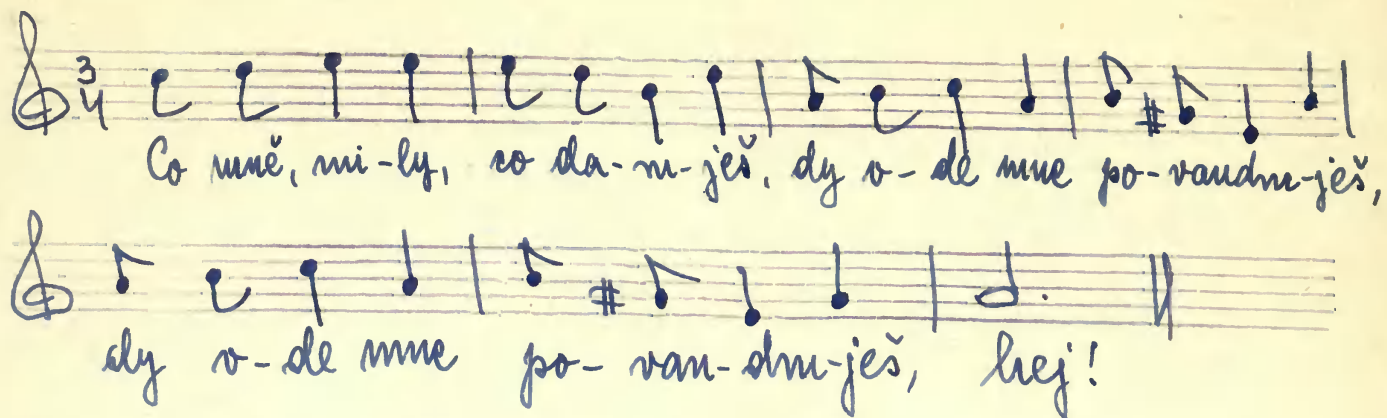 3 4
Co mně, mi-ly, co da-ru-ješ, dy v-de mne po-vandru-ješ,
dy v-de mne po-van-dru-ješ, hej!